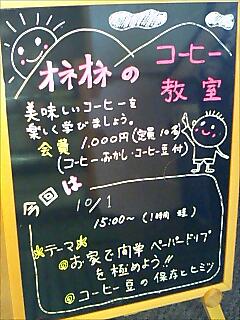 ネネの
コーヒー
教室
美味しいコーヒーを
楽しく学びましょう。
会費 1,000円(定員10名)
(コーヒー・おかし・コーヒー豆付)
今回は
10/1
15:00〜(1時間程)
テーマ
◎お家で簡単ペーパードリップ
を極めよう!!
◎コーヒー豆の保存とヒミツ